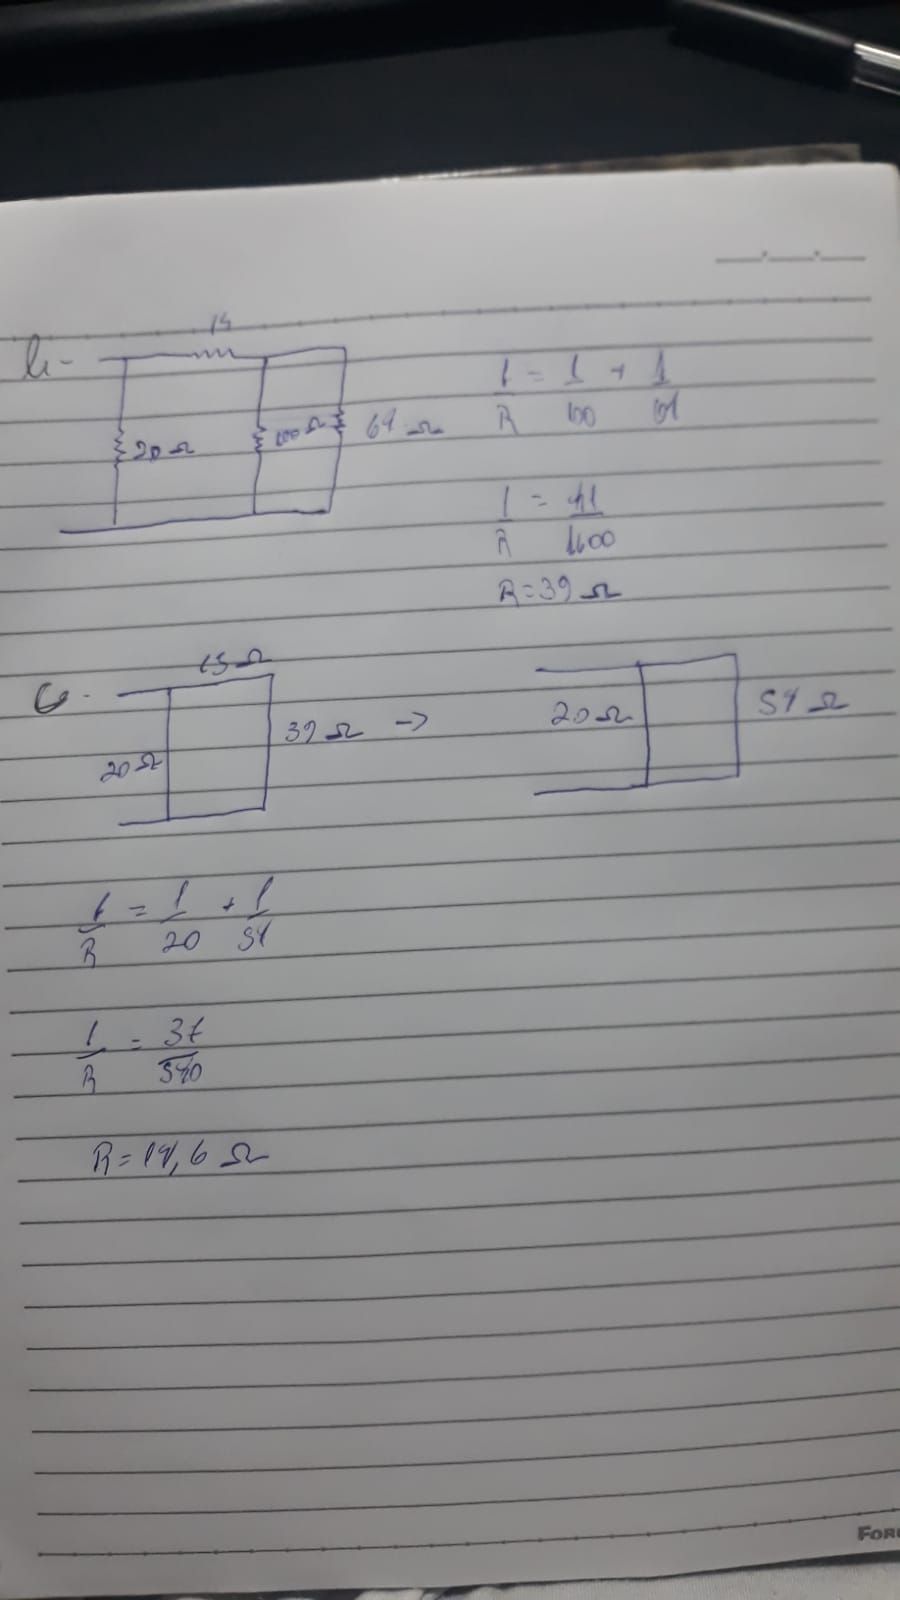 15
b-
20 Ω 100 Ω 64 Ω
1/R = 1/100 + 1/64
1/R = 41/1600
R = 39 Ω
6- 15 Ω
20 Ω 39 Ω -> 20 Ω 54 Ω
1/R = 1/20 + 1/54
1/R = 37/540
R = 14,6 Ω